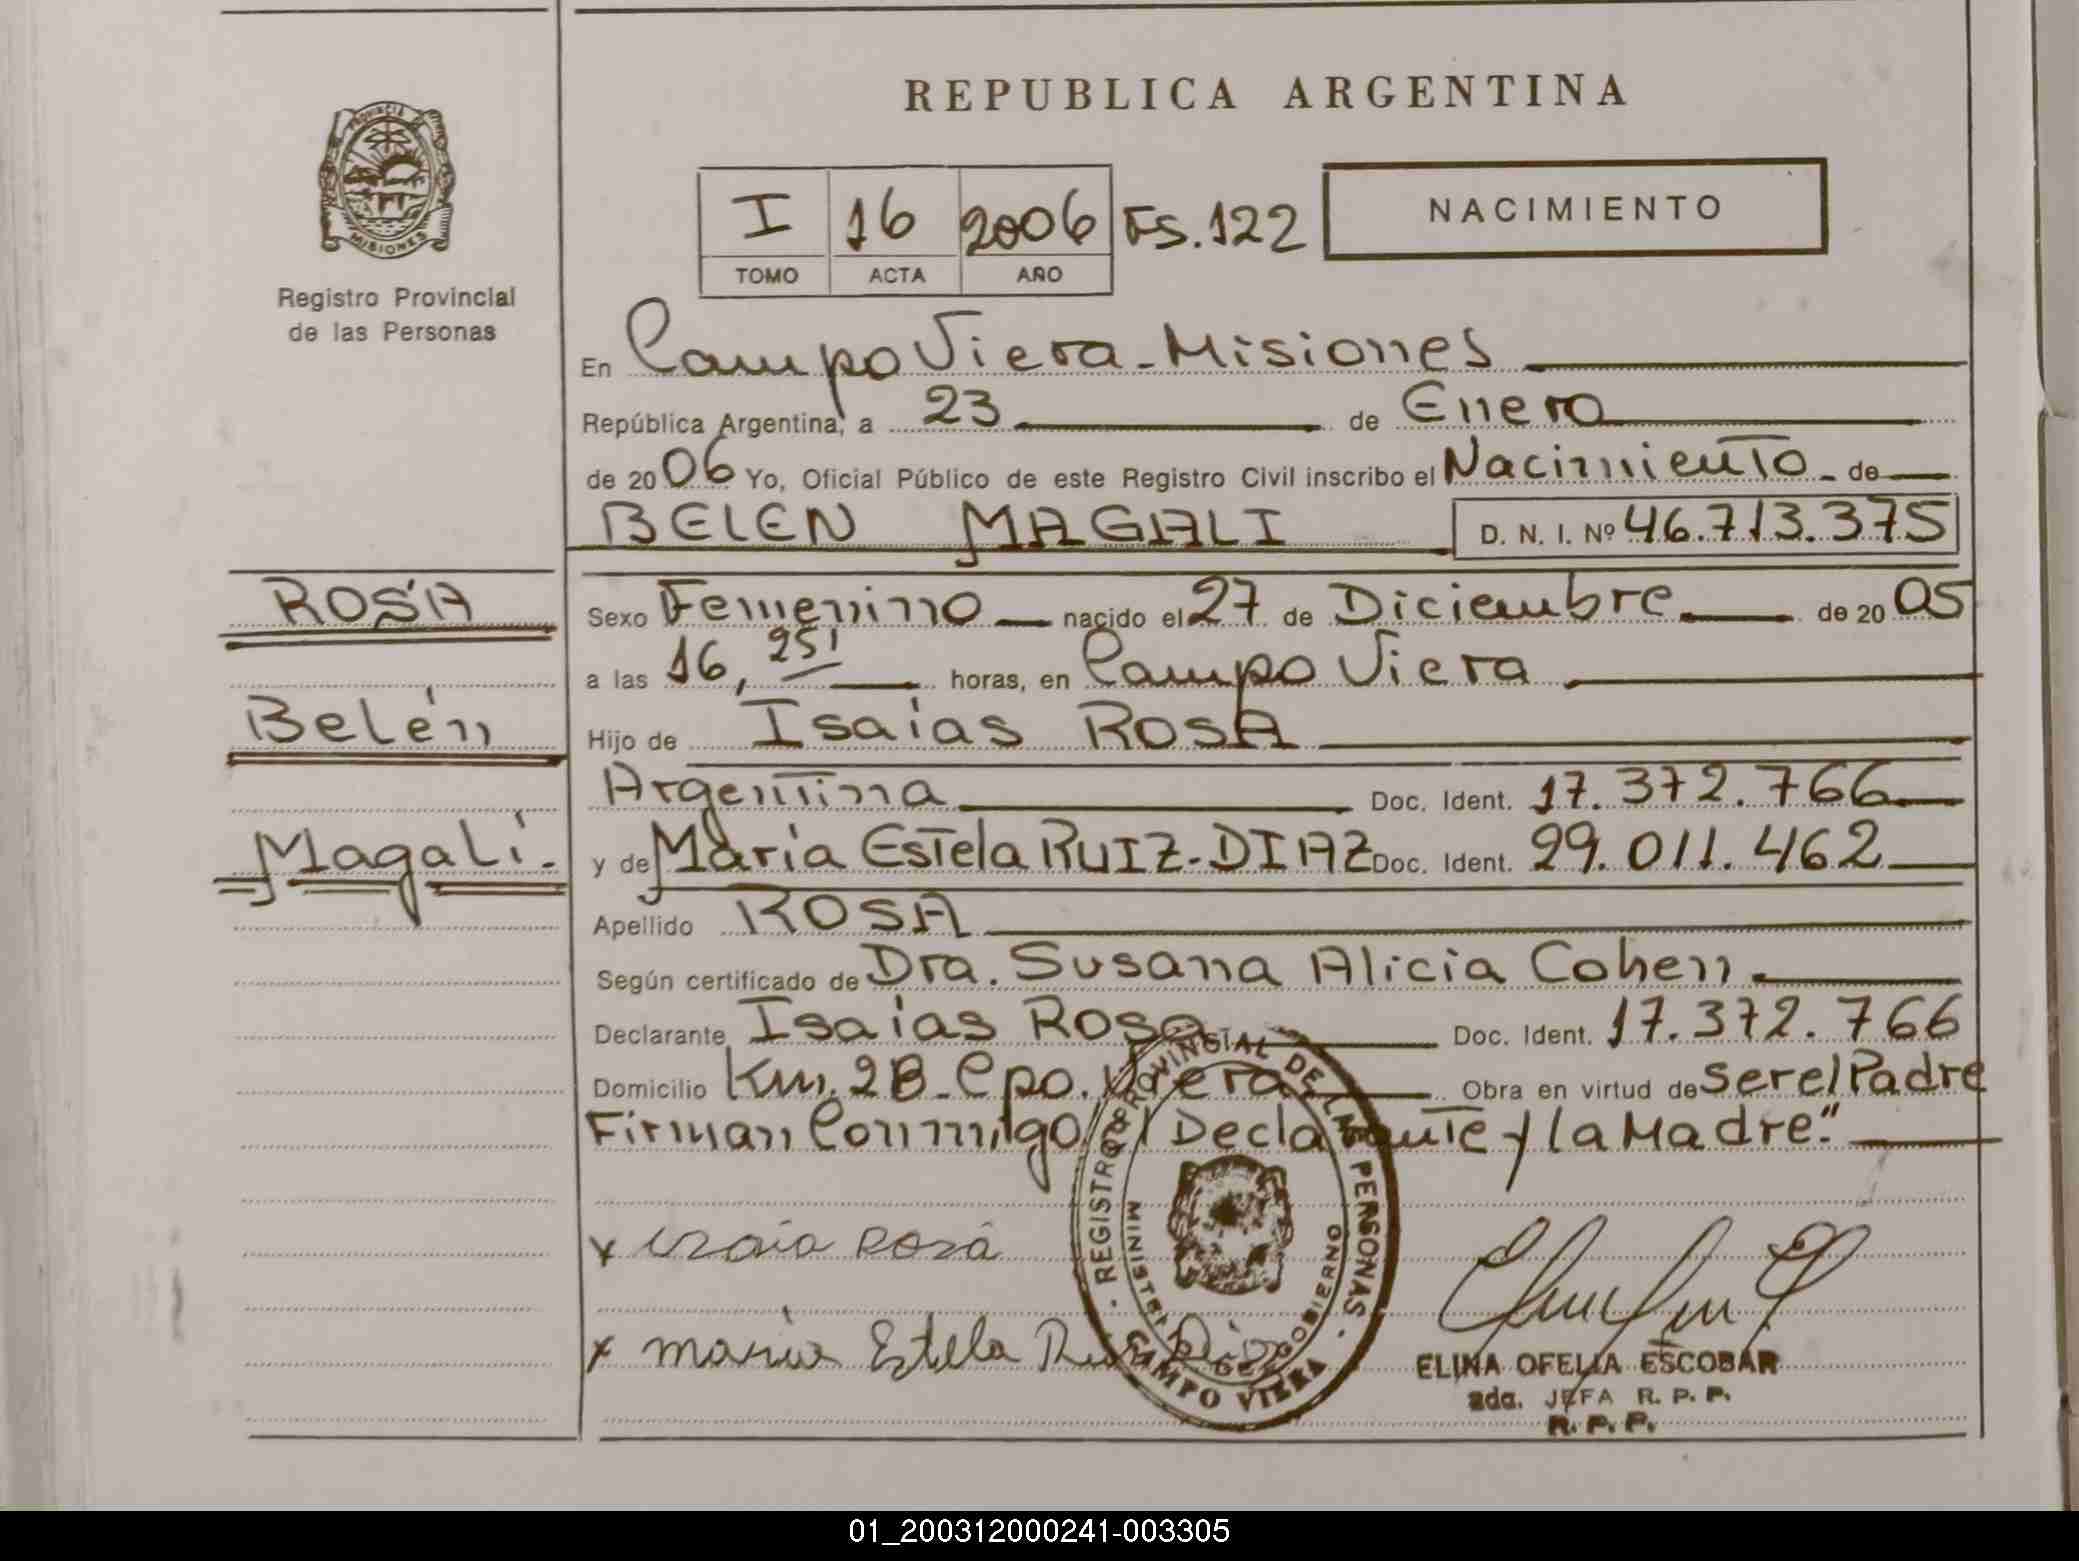 REPUBLICA ARGENTINA
PROVINCIA DE MISIONES
Registro Provincial
de las Personas
I 16 2006 Fs. 122
TOMO ACTA AÑO
NACIMIENTO
En Campo Viera - Misiones
República Argentina, a 23 de Enero
de 2006 Yo, Oficial Público de este Registro Civil inscribo el Nacimiento - de
BELEN MAGALI D. N. I. Nº 46.713.375
ROSA
Belén
Magalí.-
Sexo Femenino nacido el 27 de Diciembre de 2005
a las 16, 25' horas, en Campo Viera
Hijo de Isaías ROSA
Argentina Doc. Ident. 17.372.766
y de María Estela RUIZ-DIAZ Doc. Ident. 29.011.462
Apellido ROSA
Según certificado de Dra. Susana Alicia Cohen
Declarante Isaías Rosa Doc. Ident. 17.372.766
Domicilio Km. 28 - Cpo. Viera Obra en virtud de ser el Padre
Firman Conmigo el Declarante y la Madre."
x Maria Estela Ruiz Diaz
REGISTRO PROVINCIAL DE LAS PERSONAS
CAMPO VIERA
ELINA OFELIA ESCOBAR
2da. JEFA R. P. P.
R. P. P.
01_200312000241-003305